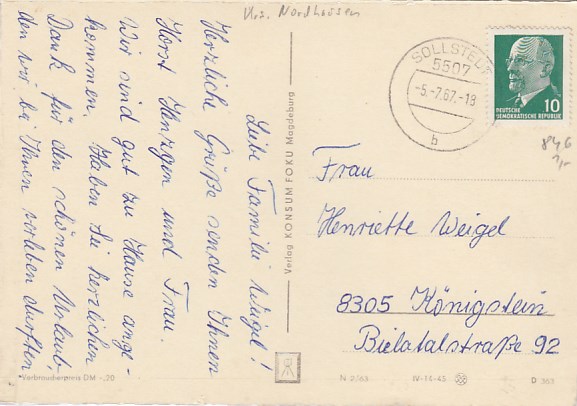 Krs. Nordhausen
Liebe Familie Weigel!
Herzliche Grüße senden Ihnen
Horst Henzgen und Frau.
Wir sind gut zu Hause ange-
kommen. Haben Sie herzlichen
Dank für den schönen Urlaub,
den wir bei Ihnen verleben durften
Verbraucherpreis DM -,20
Verlag KONSUM FOKU Magdeburg
SOLLSTEDT
5507
-5.-7.67.-18
b
DEUTSCHE
DEMOKRATISCHE REPUBLIK
10
846
Frau
Henriette Weigel
8305 Königstein
Bielatalstraße 92
N 2/63 IV-14-45 D 363